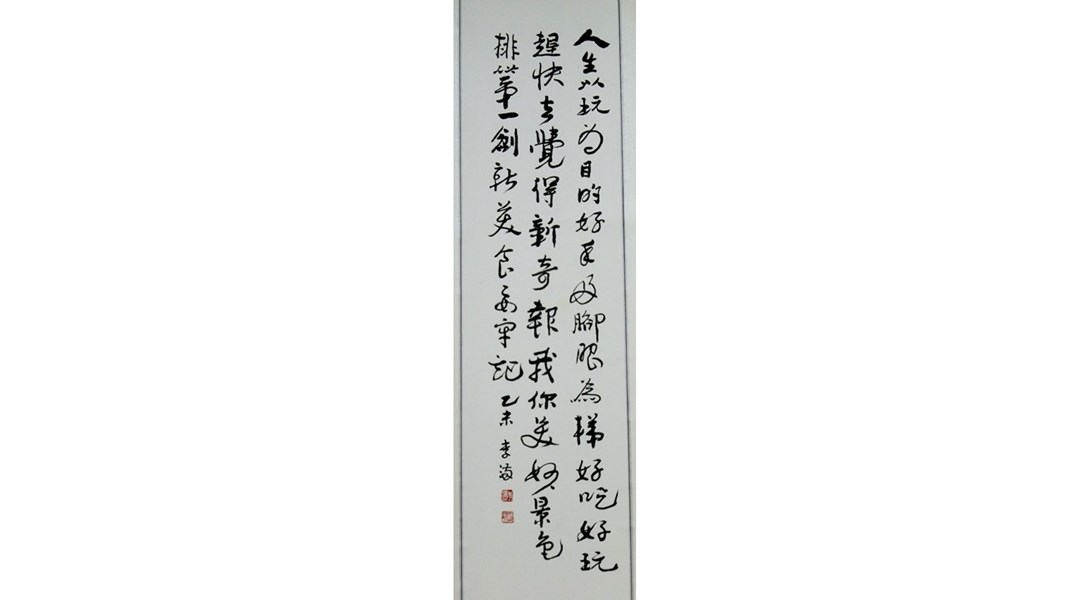 人生以玩为目的好手好腳眼為梯好吃好玩
趕快去覺得新奇報我你美好景色
排第一創新美食要牢記乙未李